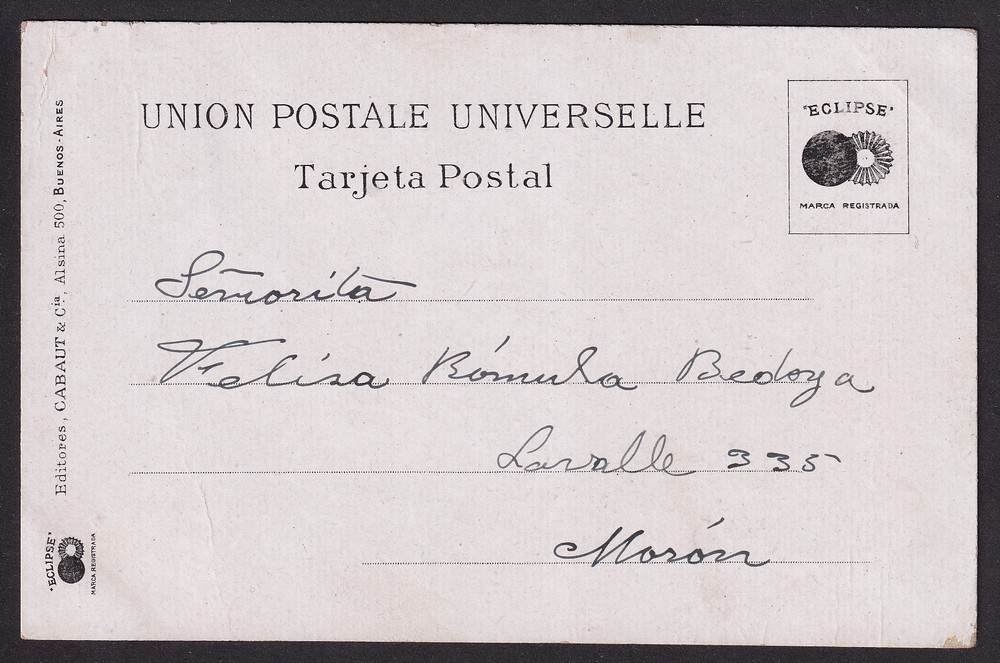 UNION POSTALE UNIVERSELLE
Tarjeta Postal
"ECLIPSE"
MARCA REGISTRADA
Señorita
Felisa Rómula Bedoya
Lavalle 335
Morón
Editores, CABAUT & Cia, Alsina 500, BUENOS-AIRES
"ECLIPSE"
MARCA REGISTRADA